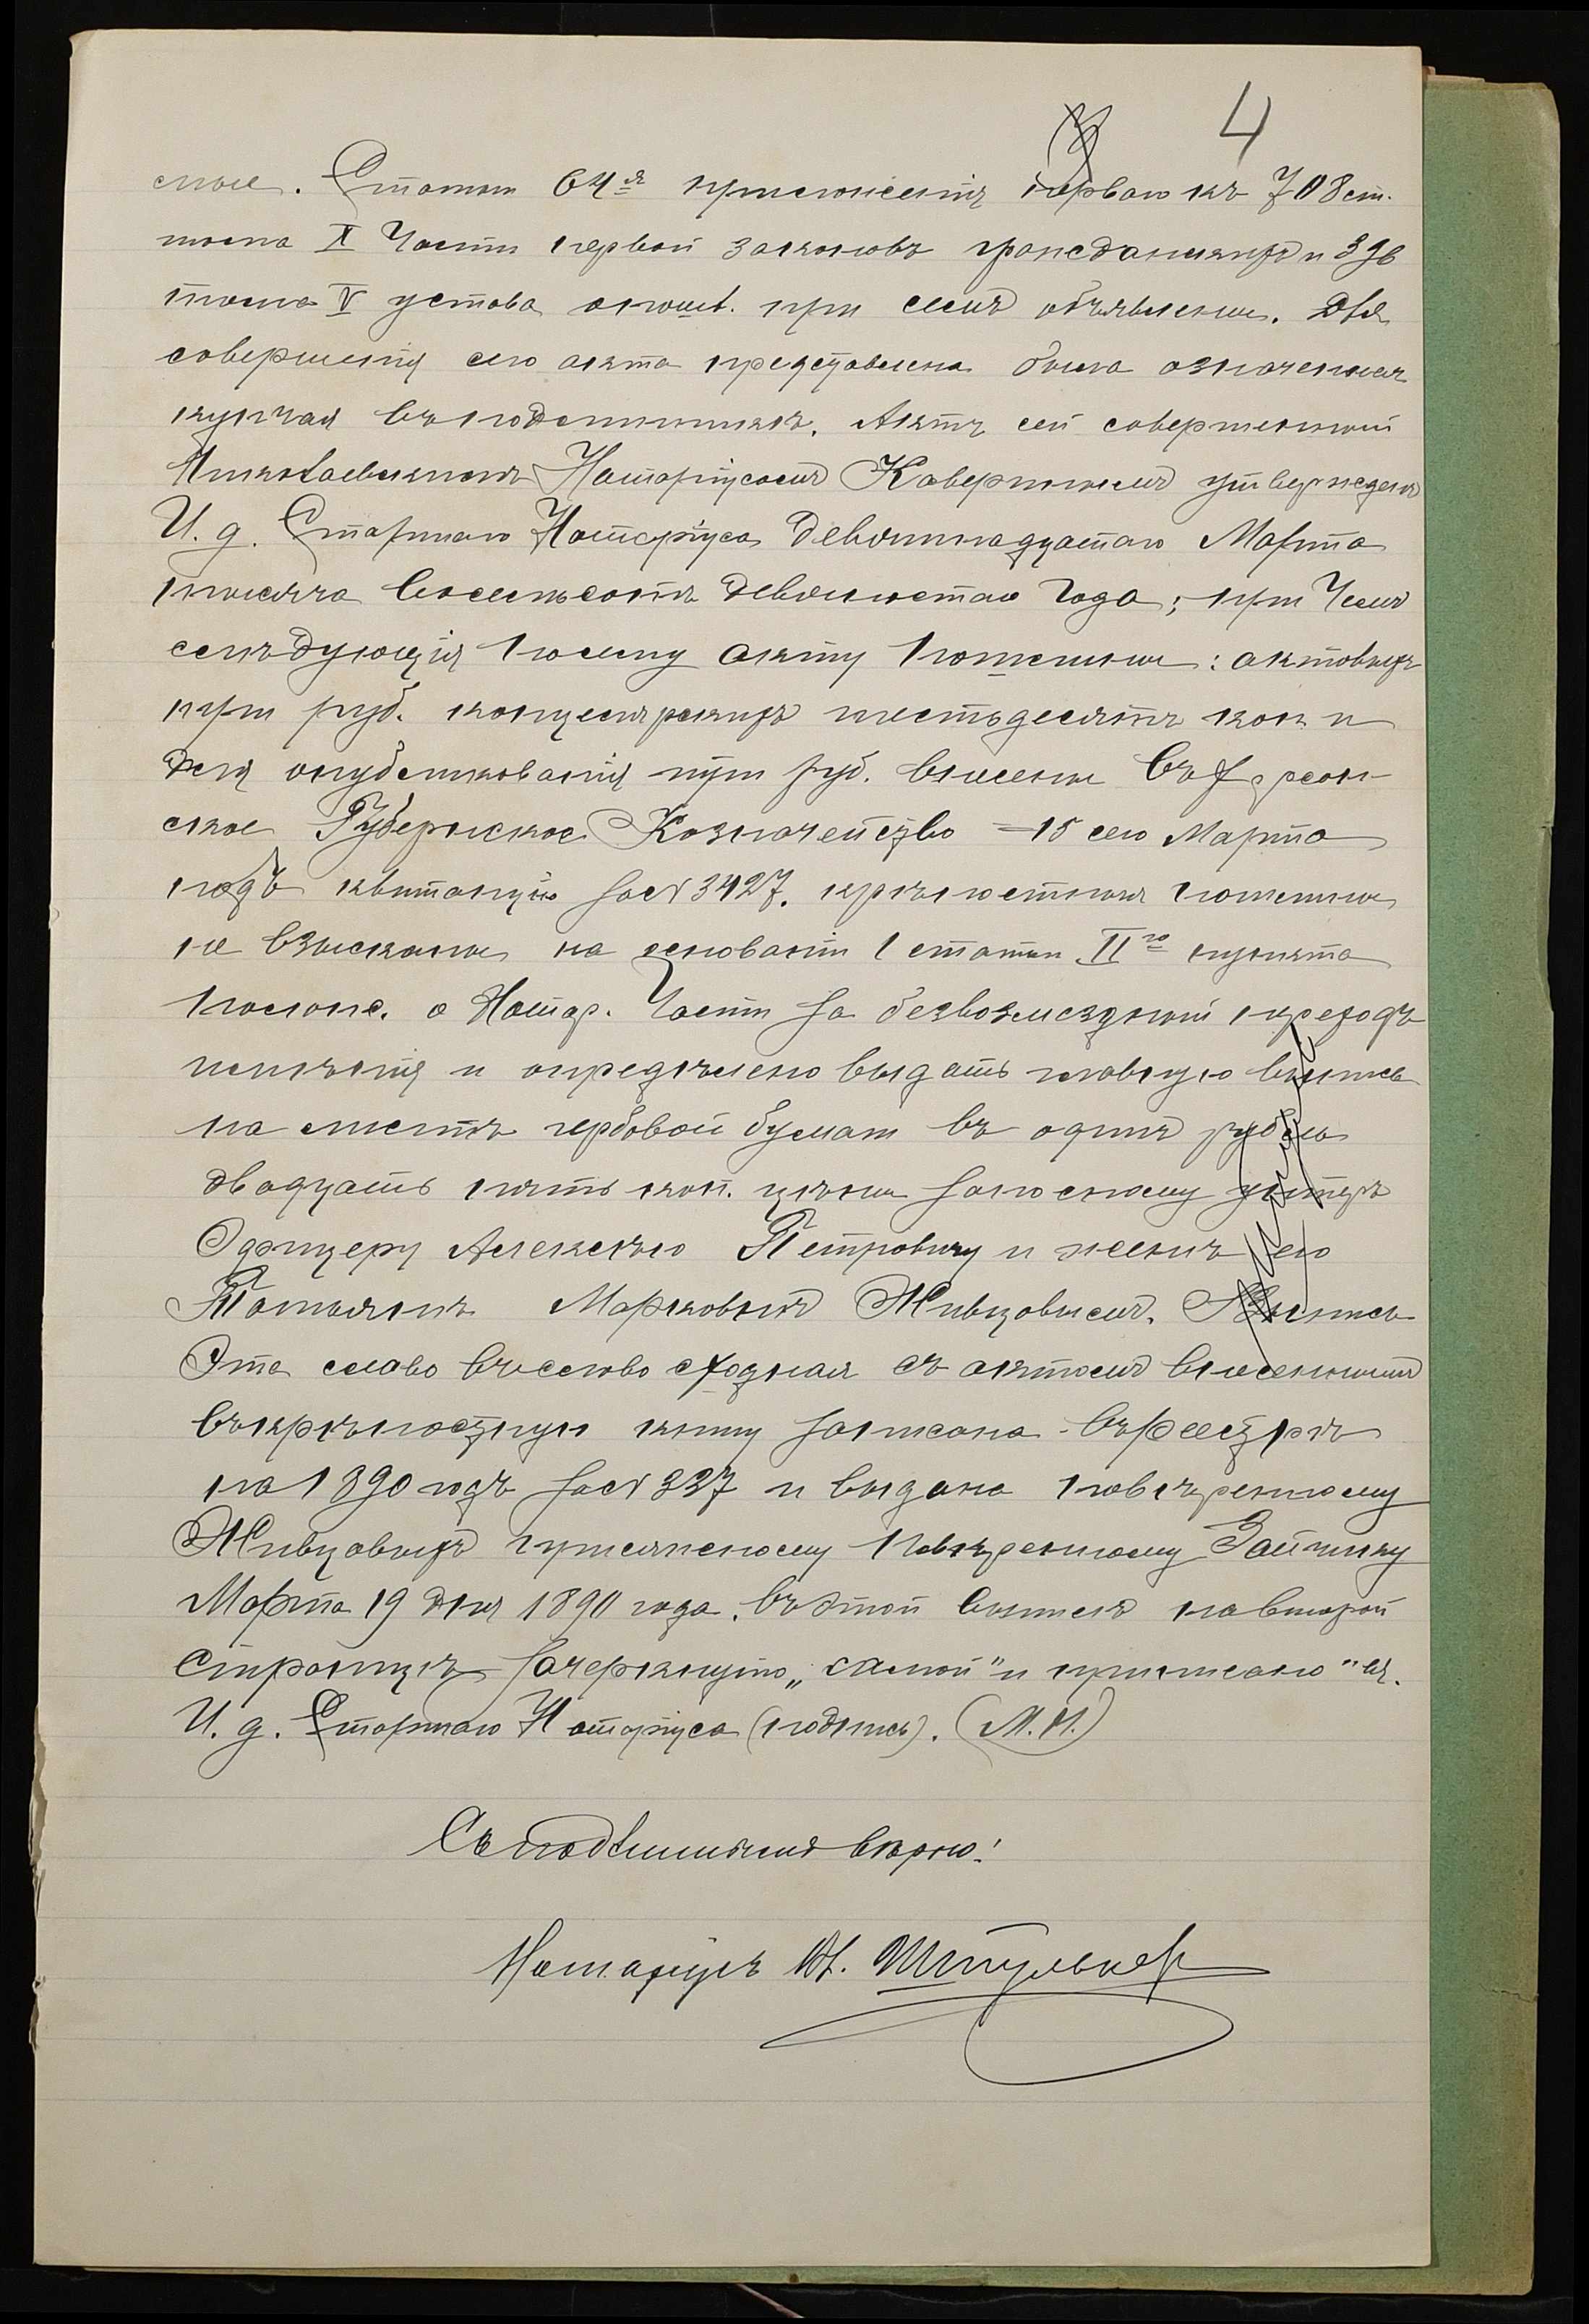 4
смые. Статьи 64я приложенія перваго къ 708 ст.
тома X Части первой законовъ гражданскихъ и 396
тома V устава о пошл. при семъ объявлены. Для
совершенія сего акта представлена была означенная
купчая въ подлинникѣ. Актъ сей совершенный
Николаевскимъ Нотаріусомъ утвержденъ
И. д. Старшаго Нотаріуса девятнадцатаго Марта
тысяча восемьсотъ девяностаго года; при чемъ
слѣдующія по сему акту пошлины: актовыхъ
три руб. канцелярскихъ шестьдесятъ коп. и
для опубликованія три руб. внесены въ Херсон-
ское Губернское Казначейство 15 сего Марта
подъ квитанцію за № 3427. крѣпостныя пошлины
не взысканы на основаніи 1 статьи II го пункта
Полож. о Нотар. Части за безвозмездный переходъ
имѣнія и опредѣлено выдать главную выпись
на листѣ гербовой бумаги въ одинъ рубль
двадцать пять коп. цѣны запасному унтеръ
Офицеру Алексѣю Петровичу и женѣ его
Татьянѣ Марковнѣ Живцовымъ. Выпись
Эта слово въ слово сходная съ актомъ внесеннымъ
въ крѣпостную книгу записана въ реестрѣ
на 1890 годъ за № 337 и выдана повѣренному
Живцовыхъ присяжному Повѣренному Зайчику
Марта 19 дня 1890 года. Въ этой выписи на второй
страницѣ зачеркнуто „самой" и приписано
И. д. Старшаго Нотаріуса (подпись). (М. П.)
Съ подлиннымъ вѣрно!
Нотаріусъ